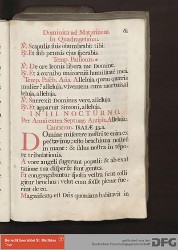 Dominica ad Matutinum 61
In Quadragesima.
℣. Scapulis suis obumbrabit tibi.
℟. Et sub pennis eius sperabis.
Temp. Passionis.
℣. De ore leonis libera me Domine.
℟. Et a cornibus unicornium humilitatē meā.
Temp. Pasch. Alleluia, quem quæris
mulier? alleluia, viventem cum mortuis al
leluia, alleluia.
℣. Surrexit Dominus vere, alleluia.
℟. Et apparuit Simoni, alleluia.
IN III. NOCTURNO
Per Annū extra Septuag. Antipha. Alleluia.
Canticum. ISAIÆ 33.
Domine miserere nostri te enim ex
pectavimus, esto brachium nostrū
in mane: & salus nostra in tēpo
re tribulationis.
A voce angeli fugerunt populi: & ab exal
tatione tua dispersæ sunt gentes.
Et congregabuntur spolia vestra sicut colli
gitur bruchus: velut cum fossæ plenæ fue
rint de eo.
Magnificatus est Dñs quoniam habitavit in
DFG